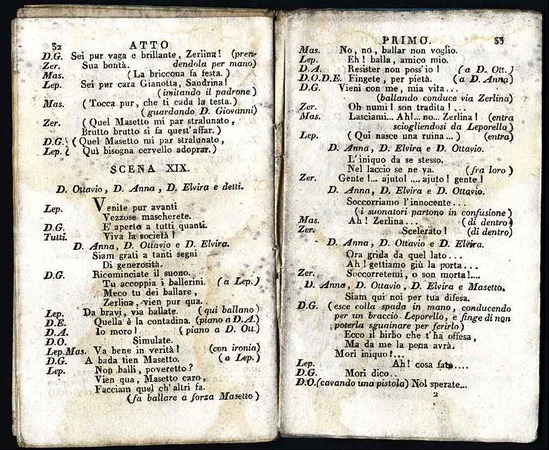 32 ATTO
D.G. Sei pur vaga e brillante, Zerlina! (pren-
Zer. Sua bontà. dendola per mano)
Mas. (La briccona fa festa.)
Lep. Sei pur cara Gianotta, Sandrina!
(imitando il padrone)
Mas. (Tocca pur, che ti cada la testa.)
(guardando D. Giovanni)
Zer. (Quel Masetto mi par stralunato,
Brutto brutto si fa quest'affar.)
D.G. (Quel Masetto mi par stralunato,
Lep. Qui bisogna cervello adoprar.)
SCENA XIX.
D. Ottavio, D. Anna, D. Elvira e detti.
Lep. Venite pur avanti
Vezzose mascherete.
D.G. E' aperto a tutti quanti.
Tutti. Viva la società!
D. Anna, D. Ottavio e D. Elvira.
Siam grati a tanti segni
Di generosità.
D.G. Ricominciate il suono.
Tu accoppia i ballerini. (a Lep.)
Meco tu dei ballare,
Zerlina, vien pur qua.
Lep. Da bravi, via ballate. (qui ballano)
D.E. Quella è la contadina. (piano a D.A.)
D.A. Io moro! (piano a D. Ott.)
D.O. Simulate.
Lep.Mas. Va bene in verità! (con ironia)
D.G. A bada tien Masetto. (a Lep.)
Lep. Non balli, poveretto?
Vien qua, Masetto caro,
Facciam quel ch'altri fa.
(fa ballare a forza Masetto)
PRIMO. 33
Mas. No, no, ballar non voglio.
Lep. Eh! balla, amico mio.
D.A. Resister non poss'io! (a D. Ott.)
D.O.D.E. Fingete, per pietà. (a D. Anna)
D.G. Vieni con me, mia vita...
(ballando conduce via Zerlina)
Zer. Oh numi! son tradita!...
Mas. Lasciami.. Ah!... no... Zerlina! (entra
sciogliendosi da Leporello)
Lep. (Qui nasce una ruina...) (entra)
D. Anna, D. Elvira e D. Ottavio.
L'iniquo da se stesso.
Nel laccio se ne va. (fra loro)
Zer. Gente!... ajuto!.... ajuto! gente!
D. Anna, D. Elvira e D. Ottavio.
Soccorriamo l'innocente...
(i suonatori partono in confusione)
Mas. Ah! Zerlina... (di dentro)
Zer. Scelerato! (di dentro)
D. Anna, D. Ottavio e D. Elvira.
Ora grida da quel lato...
Ah! gettiamo giù la porta...
Zer. Soccorretemi, o son morta!...
D. Anna, D. Ottavio, D. Elvira e Masetto.
Siam qui noi per tua difesa.
D.G. (esce colla spada in mano, conducendo
per un braccio Leporello, e finge di non
poterla sguainare per ferirlo)
Ecco il birbo che t'ha offesa,
Ma da me la pena avrà.
Mori iniquo!...
Lep. Ah! cosa fate....
D.G. Mori dico..
D.O.(cavando una pistola) Nol sperate...
2